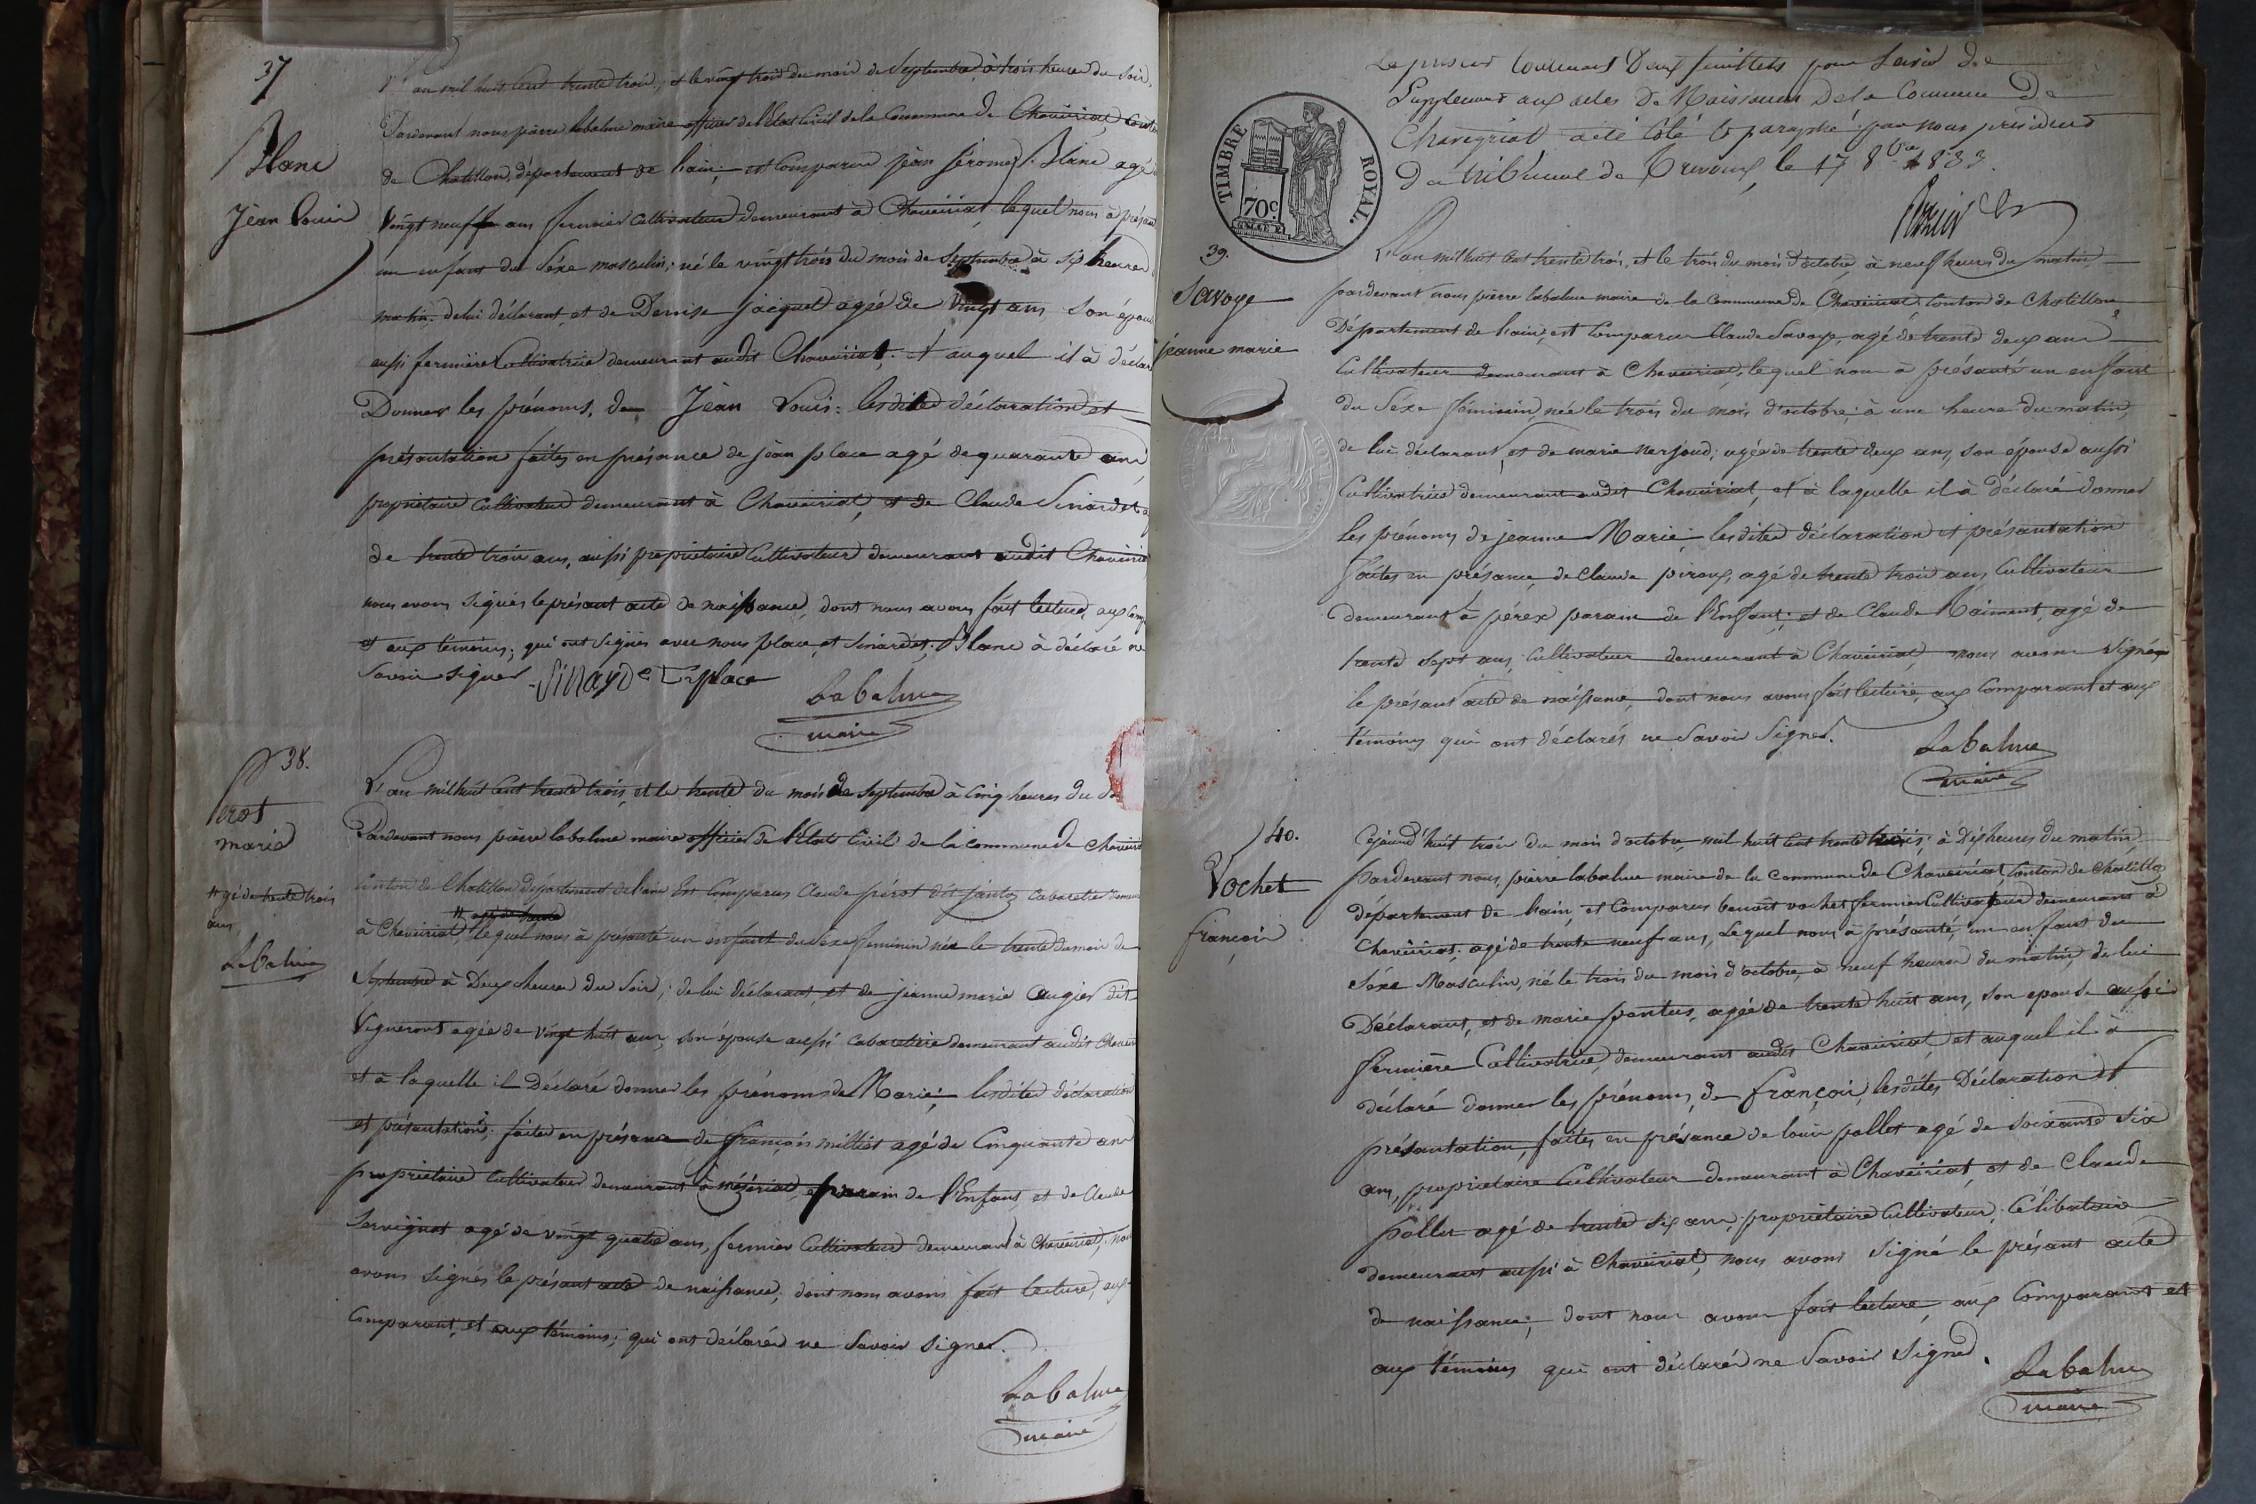 37
Blanc
Jean Louis
L'an mil huit cent trente trois, et le vingt trois du mois de Septembre, à trois heures du Soir,
Pardevant nous pierre labalme maire officier de l'Etat Civil de la Commune de Chaveiriat, Canton
de Chatillon, département de l'ain, est Comparu jean jérome Blanc agé
Vingt neuf ans fermier Cultivateur demeurant à Chaveiriat, lequel nous à présanté
un enfant du Séxe masculin, né le vingt trois du mois de Septembre à six heures
matin. de lui déclarant, et de Denise jacquet agée de Vingt ans Son épouse
aussi fermière Cultivatrice demeurant audit Chaveiriat, et auquel il à déclaré
Donner les prénoms, de Jean Louis: lesdites déclaration et
présantation faites en présance de jean place agé de quarante ans
propriétaire Cultivateur demeurant à Chaveiriat, et de Claude Sinardet
de trente trois ans, aussi propriétaire Cultivateur demeurant audit Chaveiriat
nous avons signés le présant acte de naissance, dont nous avons fait lecture, aux Comp
et aux témoins; qui ont signés avec nous place, et Sinardet. Blanc à déclaré ne
Savoir signer Sinardet place
Labalme
maire
38.
Perot
marie
# agé de trente trois
ans
Labalme
L'an mil huit cent trente trois, et le trente du mois de Septembre à Cinq heures du S
Pardevant nous pierre labalme maire officier de l'Etat Civil de la commune de Chaveiriat
Canton de Chatillon département de l'ain Est Comparus Claude pérot dit jantez Cabaretier demeurant
à Chaveiriat, # lequel nous à présanté un enfant du Séxe feminin née le trente du mois de
Septembre à Deux heures du Soir, de lui déclarant et de jeanne marie Augier dit
Vigneront agée de vingt huit ans, son épouse aussi cabaretière demeurant audit Chaveiriat
et à laquelle il Déclaré donner les prénoms de Marie; lesdites déclaration
et présantation; faites en présance de françois milliet agé de Cinquante ans
propriétaire Cultivateur demeurant à mézériat, parain de l'Enfant, et de Claude
Servignat agé de vingt quatre ans, fermier Cultivateur demeurant à Chaveiriat, nous
avons signés le présant acte de naissance; dont nous avons fait lecture, aux
Comparant, et aux témoins; qui ont déclarés ne Savoir signer.
Labalme
maire
Le present Contenant Deux feuillets pour Servir de
Supplement aux actes De Naissances De la Commune De
Chaveyriat a été Coté et paraphé par nous president
du tribunal de Trevoux, le 17 8bre 1833.
TIMBRE ROYAL.
70c
39.
Savoye
jeanne marie
L'an mil huit cent trente trois, et le trois du mois d'octobre, à neuf heures du matin,
pardevant nous pierre labalme maire de la Commune de Chaveiriat Canton de Chatillon
Département de l'ain, est Comparu Claude Savoye, agé de trente deux ans
Cultivateur demeurant à Chaveiriat, lequel nous à présanté un enfant
du Séxe féminin, née le trois du mois d'octobre, à une heure du matin,
de lui déclarant, et de marie nerjoud, agée de trente deux ans, son épouse aussi
Cultivatrice demeurant audit Chaveiriat, et à laquelle il à déclaré donner
les prénoms de jeanne Marie; lesdites déclaration et présantation
faites en présance, de Claude piroux, agé de trente trois ans, Cultivateur
demeurant à pérex parain de l'Enfant; et de Claude Raiment, agé de
trente sept ans, Cultivateur demeurant à Chaveiriat, nous avons signés
le présant acte de naissance, dont nous avons fait lecture, aux Comparant et aux
témoins qui ont déclarés ne Savoir Signer.
Labalme
maire
40.
Vochet
françois
Cejourd'huit trois du mois d'octobre mil huit cent trente trois, à Dix heures du matin
pardevant nous, pierre labalme maire de la Commune de Chaveiriat, Canton de Chatillon
département de l'ain, est Comparus benoit vochet fermier Cultivateur demeurant à
Chaveiriat. agé de trente neuf ans, Lequel nous à présanté, un enfant du
Séxe Masculin, né le trois du mois d'octobre, à neuf heures du matin, de lui
Déclarant, et de marie pontus, agée de trente huit ans, son epouse aussi
fermière Cultivatrice, demeurant audit Chaveiriat, et auquel il à
déclaré donner les prénoms, de françois, lesdites Déclaration et
présantation, faites en présance de louis pollet agé de soixante six
ans, propriétaire Cultivateur demeurant à Chaveiriat, et de Claude
pollet agé de trente six ans, propriétaire Cultivateur, Célibataire
demeurant aussi à Chaveiriat, nous avons signé le présant acte
de naissance; dont nous avons fait lecture, aux Comparant et
aux témoins qui ont déclarés ne Savoir Signer.
Labalme
maire